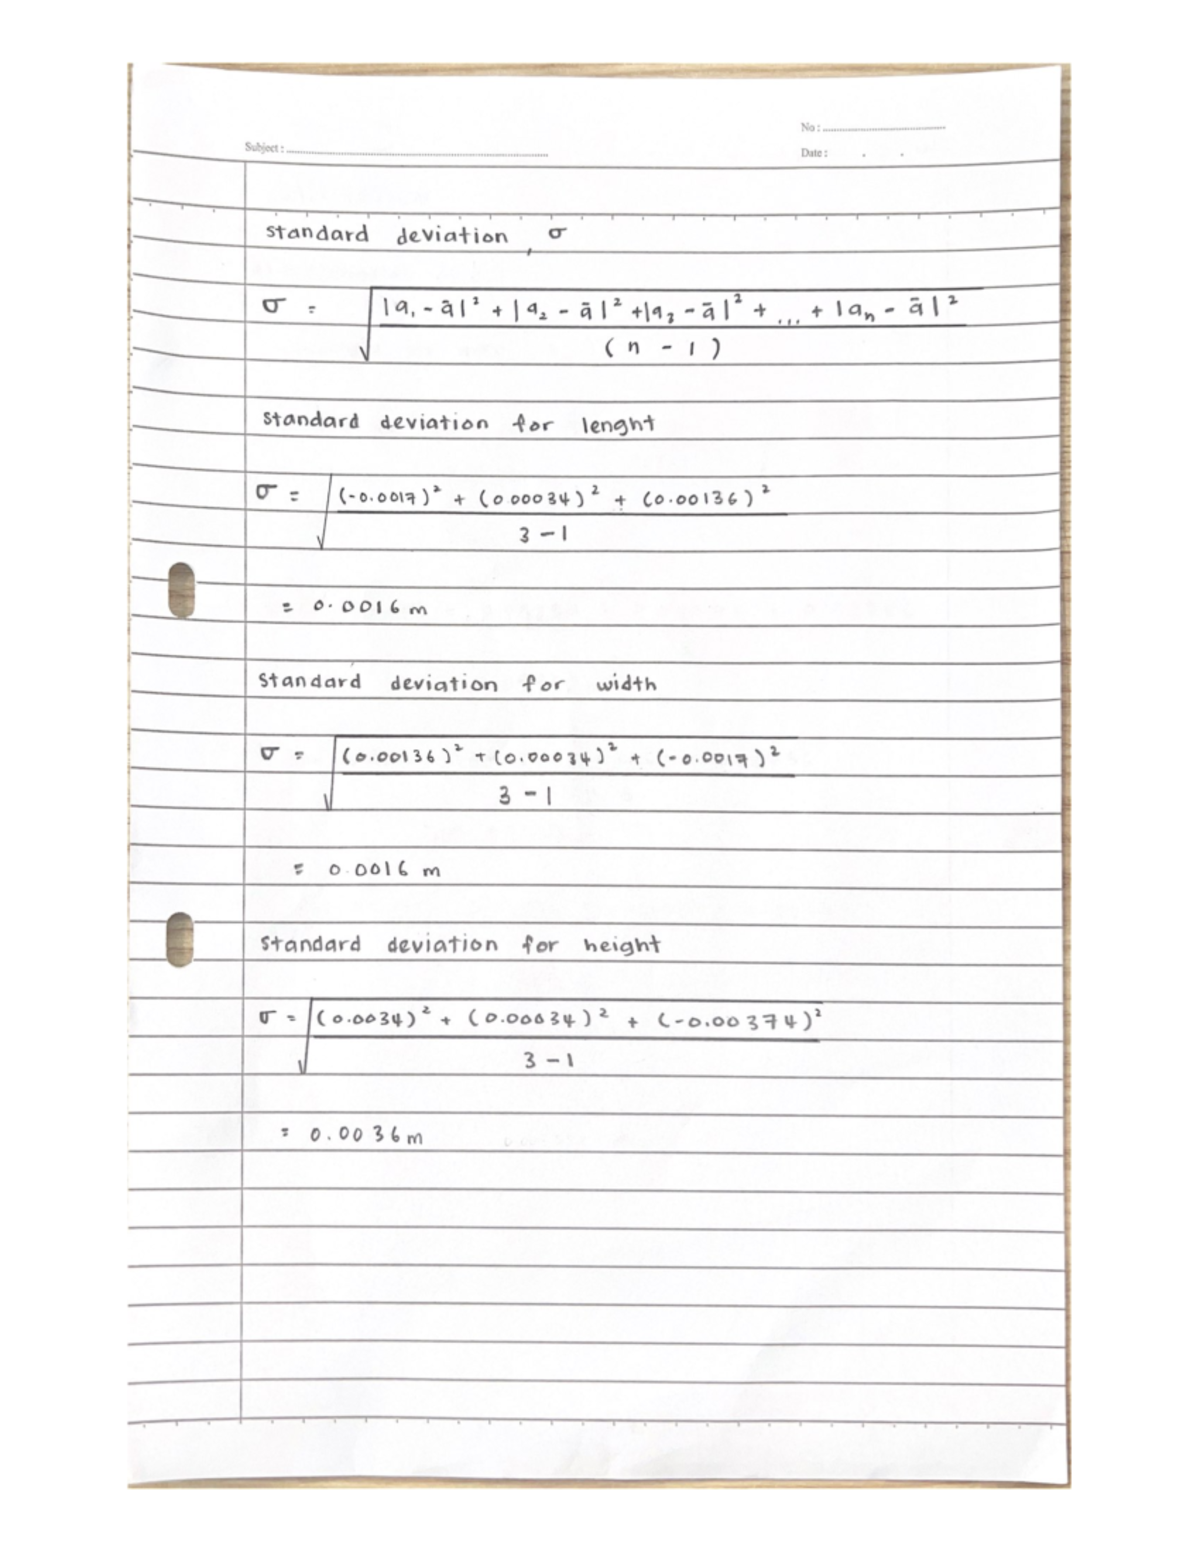 No :
Subject :
Date : . .
standard deviation, σ
σ = √ |a₁ - ā|² + |a₂ - ā|² + |a₃ - ā|² + ... + |aₙ - ā|²
(n - 1)
standard deviation for lenght
σ = √ (-0.0017)² + (0.00034)² + (0.00136)²
3 - 1
= 0.0016 m
standard deviation for width
σ = √ (0.00136)² + (0.00034)² + (-0.0017)²
3 - 1
= 0.0016 m
standard deviation for height
σ = √ (0.0034)² + (0.00034)² + (-0.00374)²
3 - 1
= 0.0036 m